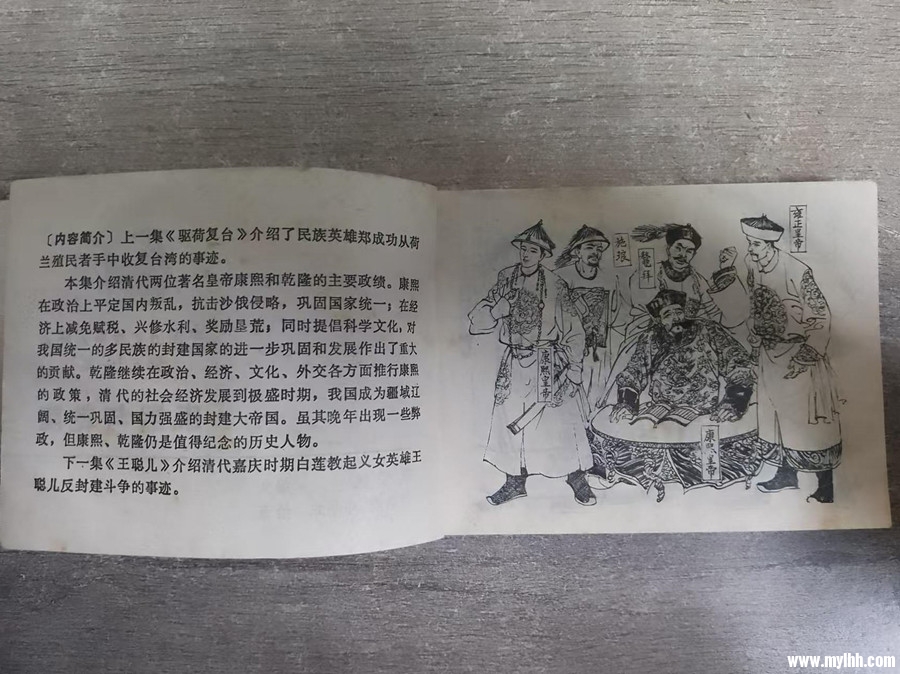 〔内容简介〕上一集《驱荷复台》介绍了民族英雄郑成功从荷
兰殖民者手中收复台湾的事迹。
本集介绍清代两位著名皇帝康熙和乾隆的主要政绩。康熙
在政治上平定国内叛乱，抗击沙俄侵略，巩固国家统一；在经
济上减免赋税、兴修水利、奖励垦荒；同时提倡科学文化，对
我国统一的多民族的封建国家的进一步巩固和发展作出了重大
的贡献。乾隆继续在政治、经济、文化、外交各方面推行康熙
的政策，清代的社会经济发展到极盛时期，我国成为疆域辽
阔、统一巩固、国力强盛的封建大帝国。虽其晚年出现一些弊
政，但康熙、乾隆仍是值得纪念的历史人物。
下一集《王聪儿》介绍清代嘉庆时期白莲教起义女英雄王
聪儿反封建斗争的事迹。
施琅
鳌拜
雍正皇帝
康熙皇帝
康熙皇帝
www.mylhh.com